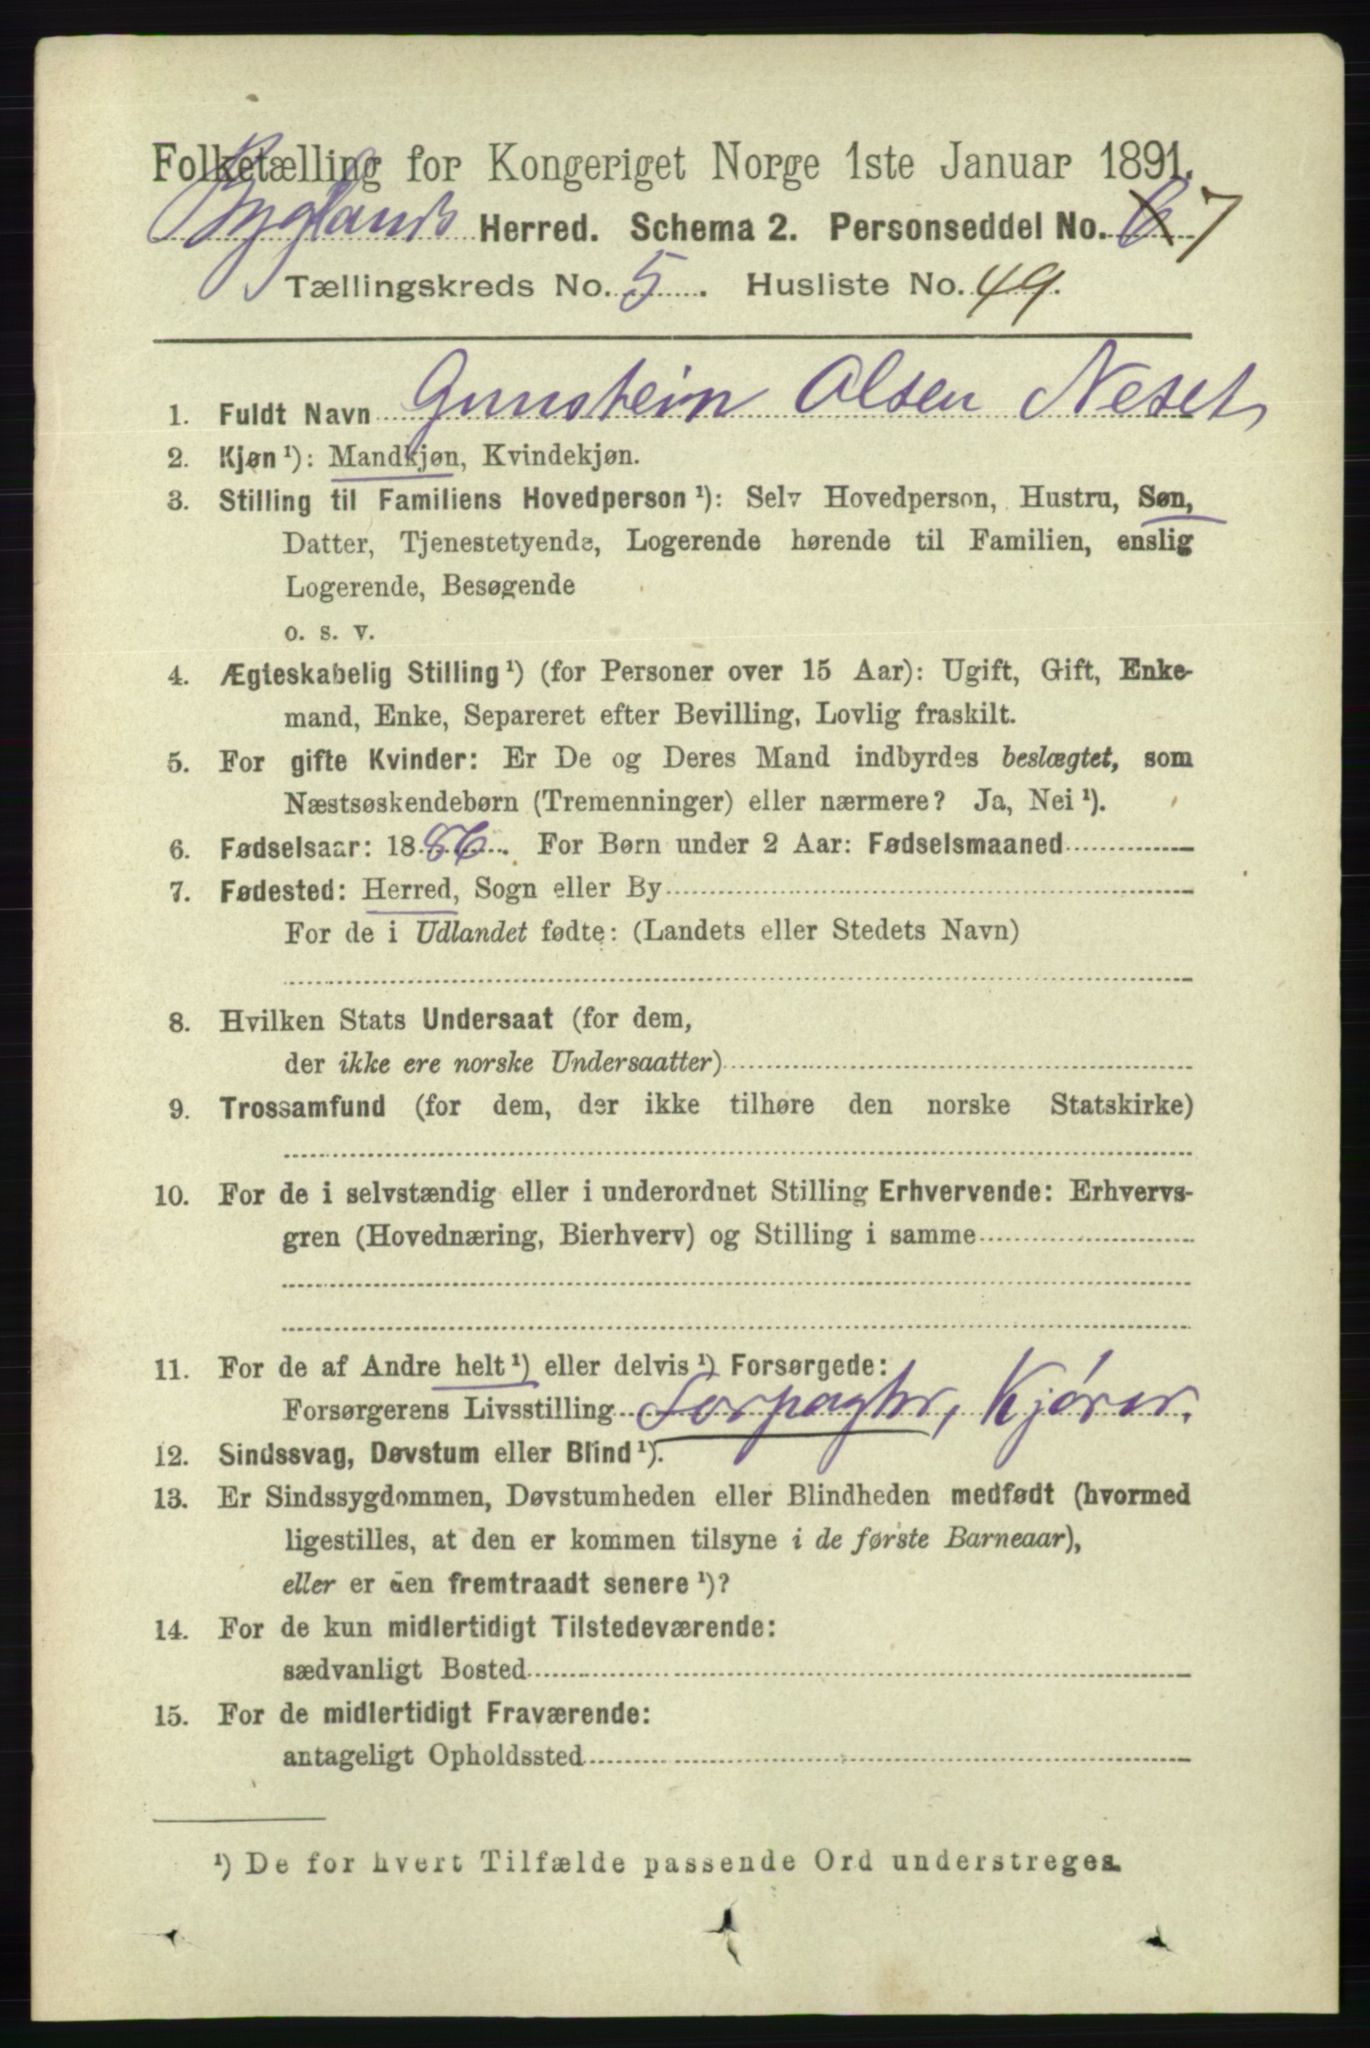 Folketælling for Kongeriget Norge 1ste Januar 1891.
Byglands Herred. Schema 2. Personseddel No. 6 7
Tællingskreds No. 5. Husliste No. 49.
1. Fuldt Navn Gunstein Olsen Neset,
2. Kjøn¹): Mandkjøn, Kvindekjøn.
3. Stilling til Familiens Hovedperson¹): Selv Hovedperson, Hustru, Søn,
Datter, Tjenestetyende, Logerende hørende til Familien, enslig
Logerende, Besøgende
o. s. v.
4. Ægteskabelig Stilling¹) (for Personer over 15 Aar): Ugift, Gift, Enke-
mand, Enke, Separeret efter Bevilling, Lovlig fraskilt.
5. For gifte Kvinder: Er De og Deres Mand indbyrdes beslægtet, som
Næstsøskendebørn (Tremenninger) eller nærmere? Ja, Nei¹).
6. Fødselsaar: 1886. For Børn under 2 Aar: Fødselsmaaned
7. Fødested: Herred, Sogn eller By
For de i Udlandet fødte: (Landets eller Stedets Navn)
8. Hvilken Stats Undersaat (for dem,
der ikke ere norske Undersaatter)
9. Trossamfund (for dem, der ikke tilhøre den norske Statskirke)
10. For de i selvstændig eller i underordnet Stilling Erhvervende: Erhvervs-
gren (Hovednæring, Bierhverv) og Stilling i samme
11. For de af Andre helt¹) eller delvis¹) Forsørgede:
Forsørgerens Livsstilling Forpagter, Kjører.
12. Sindssvag, Døvstum eller Blind¹).
13. Er Sindssygdommen, Døvstumheden eller Blindheden medfødt (hvormed
ligestilles, at den er kommen tilsyne i de første Barneaar),
eller er den fremtraadt senere¹)?
14. For de kun midlertidigt Tilstedeværende:
sædvanligt Bosted
15. For de midlertidigt Fraværende:
antageligt Opholdssted
¹) De for hvert Tilfælde passende Ord understreges.